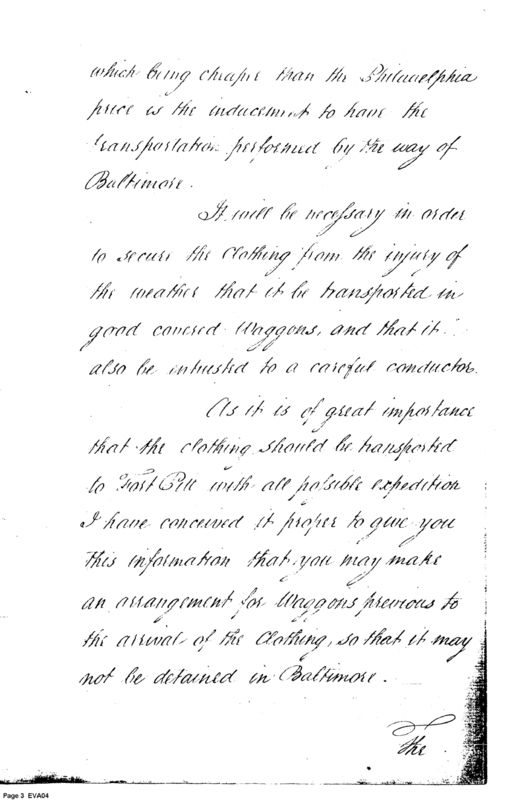 which being cheaper than the Philadelphia
price is the inducement to have the
transportation performed by the way of
Baltimore.
It will be necessary in order
to secure the Clothing from the injury of
the weather that it be transported in
good covered Waggons, and that it
also be intrusted to a careful conductor.
As it is of great importance
that the clothing should be transported
to Fort Pitt with all possible expedition
I have conceived it proper to give you
this information that you may make
an arrangement for Waggons previous to
the arrival of the Clothing, so that it may
not be detained in Baltimore.
The
Page 3 EVA04